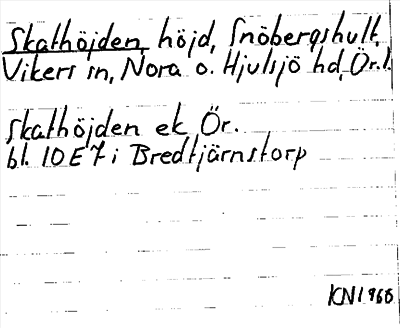 Skathöjden, höjd, Snöbergshult,
Vikers sn, Nora o. Hjulsjö hd, Ör.l.
Skathöjden ek Ör.
bl. 10E7i Bredtjärnstorp
KN1966